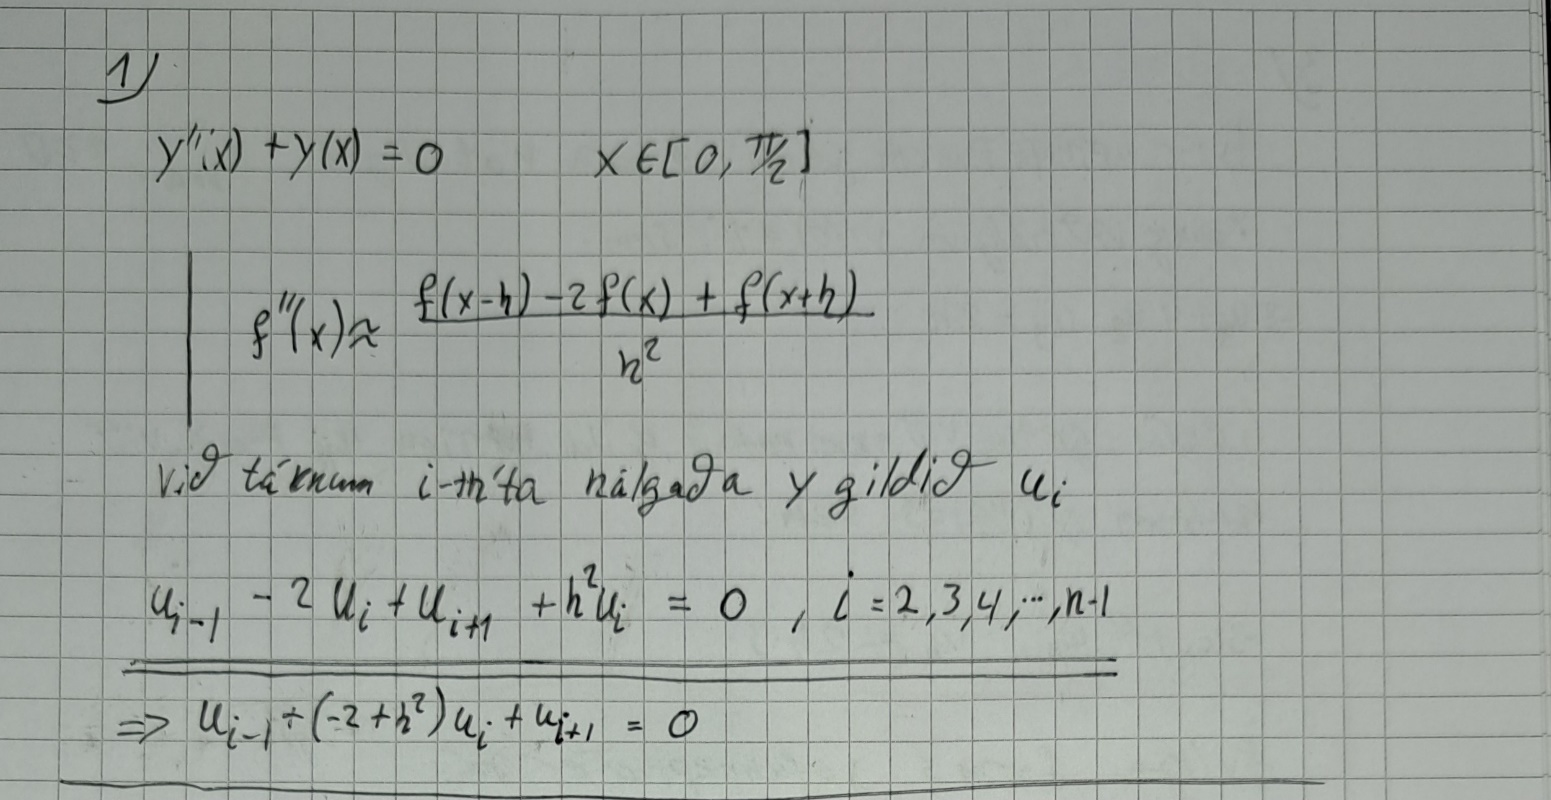 1)
y''(x) + y(x) = 0 x ∈ [0, π/2]
f''(x) ≈ (f(x-h) - 2f(x) + f(x+h)) / h²
við táknum i-ta nálgaða y gildið u_i
u_{i-1} - 2u_i + u_{i+1} + h²u_i = 0 , i = 2,3,4,...,n-1
=> u_{i-1} + (-2 + h²)u_i + u_{i+1} = 0